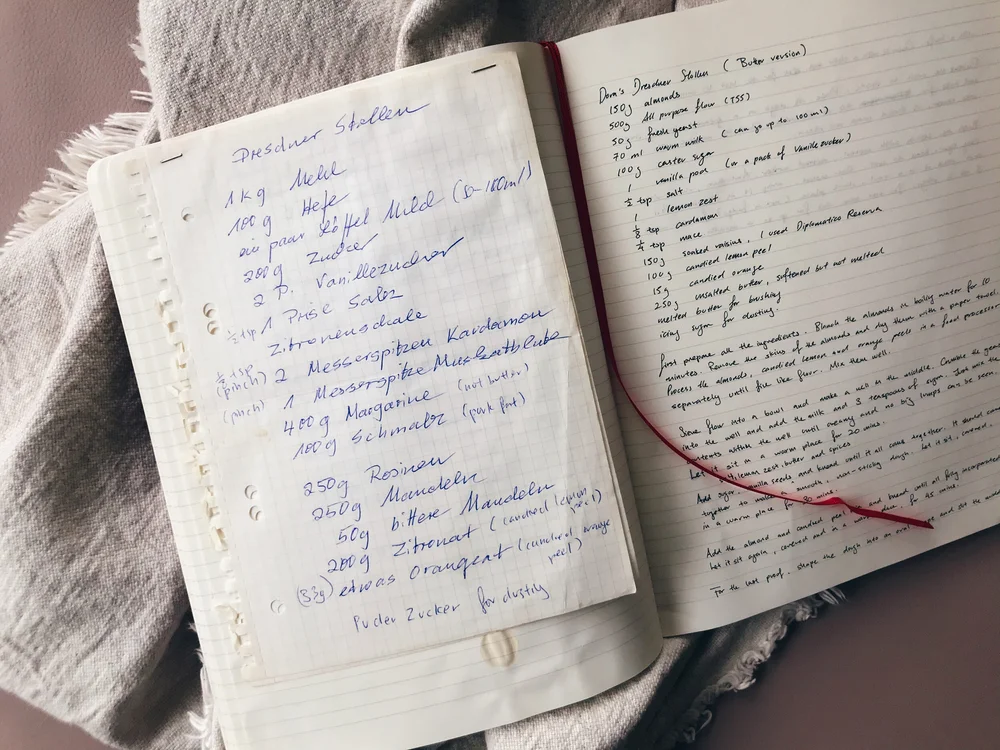 Dresdner Stollen
1 kg Mehl
100g Hefe
ein paar Löffel Milch (50-100ml)
200g Zucker
2 P. Vanillezucker
1 Prise Salz
½ tsp
Zitronenschale
2 Messerspitzen Kardamon
¼ tsp (pinch)
1 Messerspitze Muskatblüte
(pinch)
400g Margarine (not butter)
100g Schmalz (pork fat)
250g Rosinen
250g Mandeln
50g bittere Mandeln
200g Zitronat (candied lemon peel)
(33g) etwas Orangeat (candied orange peel)
Puder Zucker for dusting
Dorn's Dresdner Stollen (Butter version)
150g almonds
500g All purpose flour (T55)
50g fresh yeast
70 ml warm milk (can go up to 100ml)
100g caster sugar
1 vanilla pod (or a pack of Vanillezucker)
½ tsp salt
1 lemon zest
⅛ tsp cardamon
¼ tsp mace
150g soaked raisins, I used Diplomatico Reserva
100g candied lemon peel
15g candied orange
250g unsalted butter, softened but not melted
melted butter for brushing
icing sugar for dusting.
First prepare all the ingredients. Blanch the almonds in boiling water for 10
minutes. Remove the skins of the almonds and dry them with a paper towel.
Process the almonds, candied lemon and orange peels in a food processor
separately until fine like flour. Mix them well.
flour into a bowl and make a well in the middle. Crumble the
into the well and add the milk and 3 teaspoons of sugar. Just mix the
within the well until creamy and no big lumps can be seen.
Let it sit in a warm place for 20 mins.
Add sugar, lemon zest, butter and spices
vanilla seeds and knead until it all comes together. It should
together to smooth, non-sticky dough. Let it sit, covered,
in a warm place for 30 mins.
Add the almond and candied peel and knead until all fully incorporated
Let it sit again, covered and in a warm place for 45 mins.
For the last proof, shape the dough into an oval